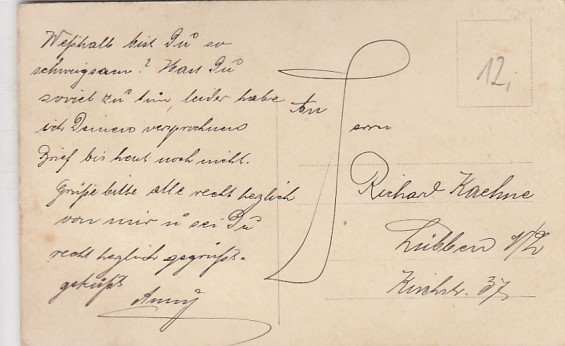 Weßhalb bist Du so
schweigsam? Hast Du
soviel zu tun, leider habe
ich Deinen versprochnen
Brief bis heut noch nicht.
Grüße bitte alle recht herzlich
von mir u sei Du
recht herzlich gegrüßt-
geküßt
Anny
12,
An
Herrn
Richard Kaehne
Lübben n/L
Kirchstr. 37